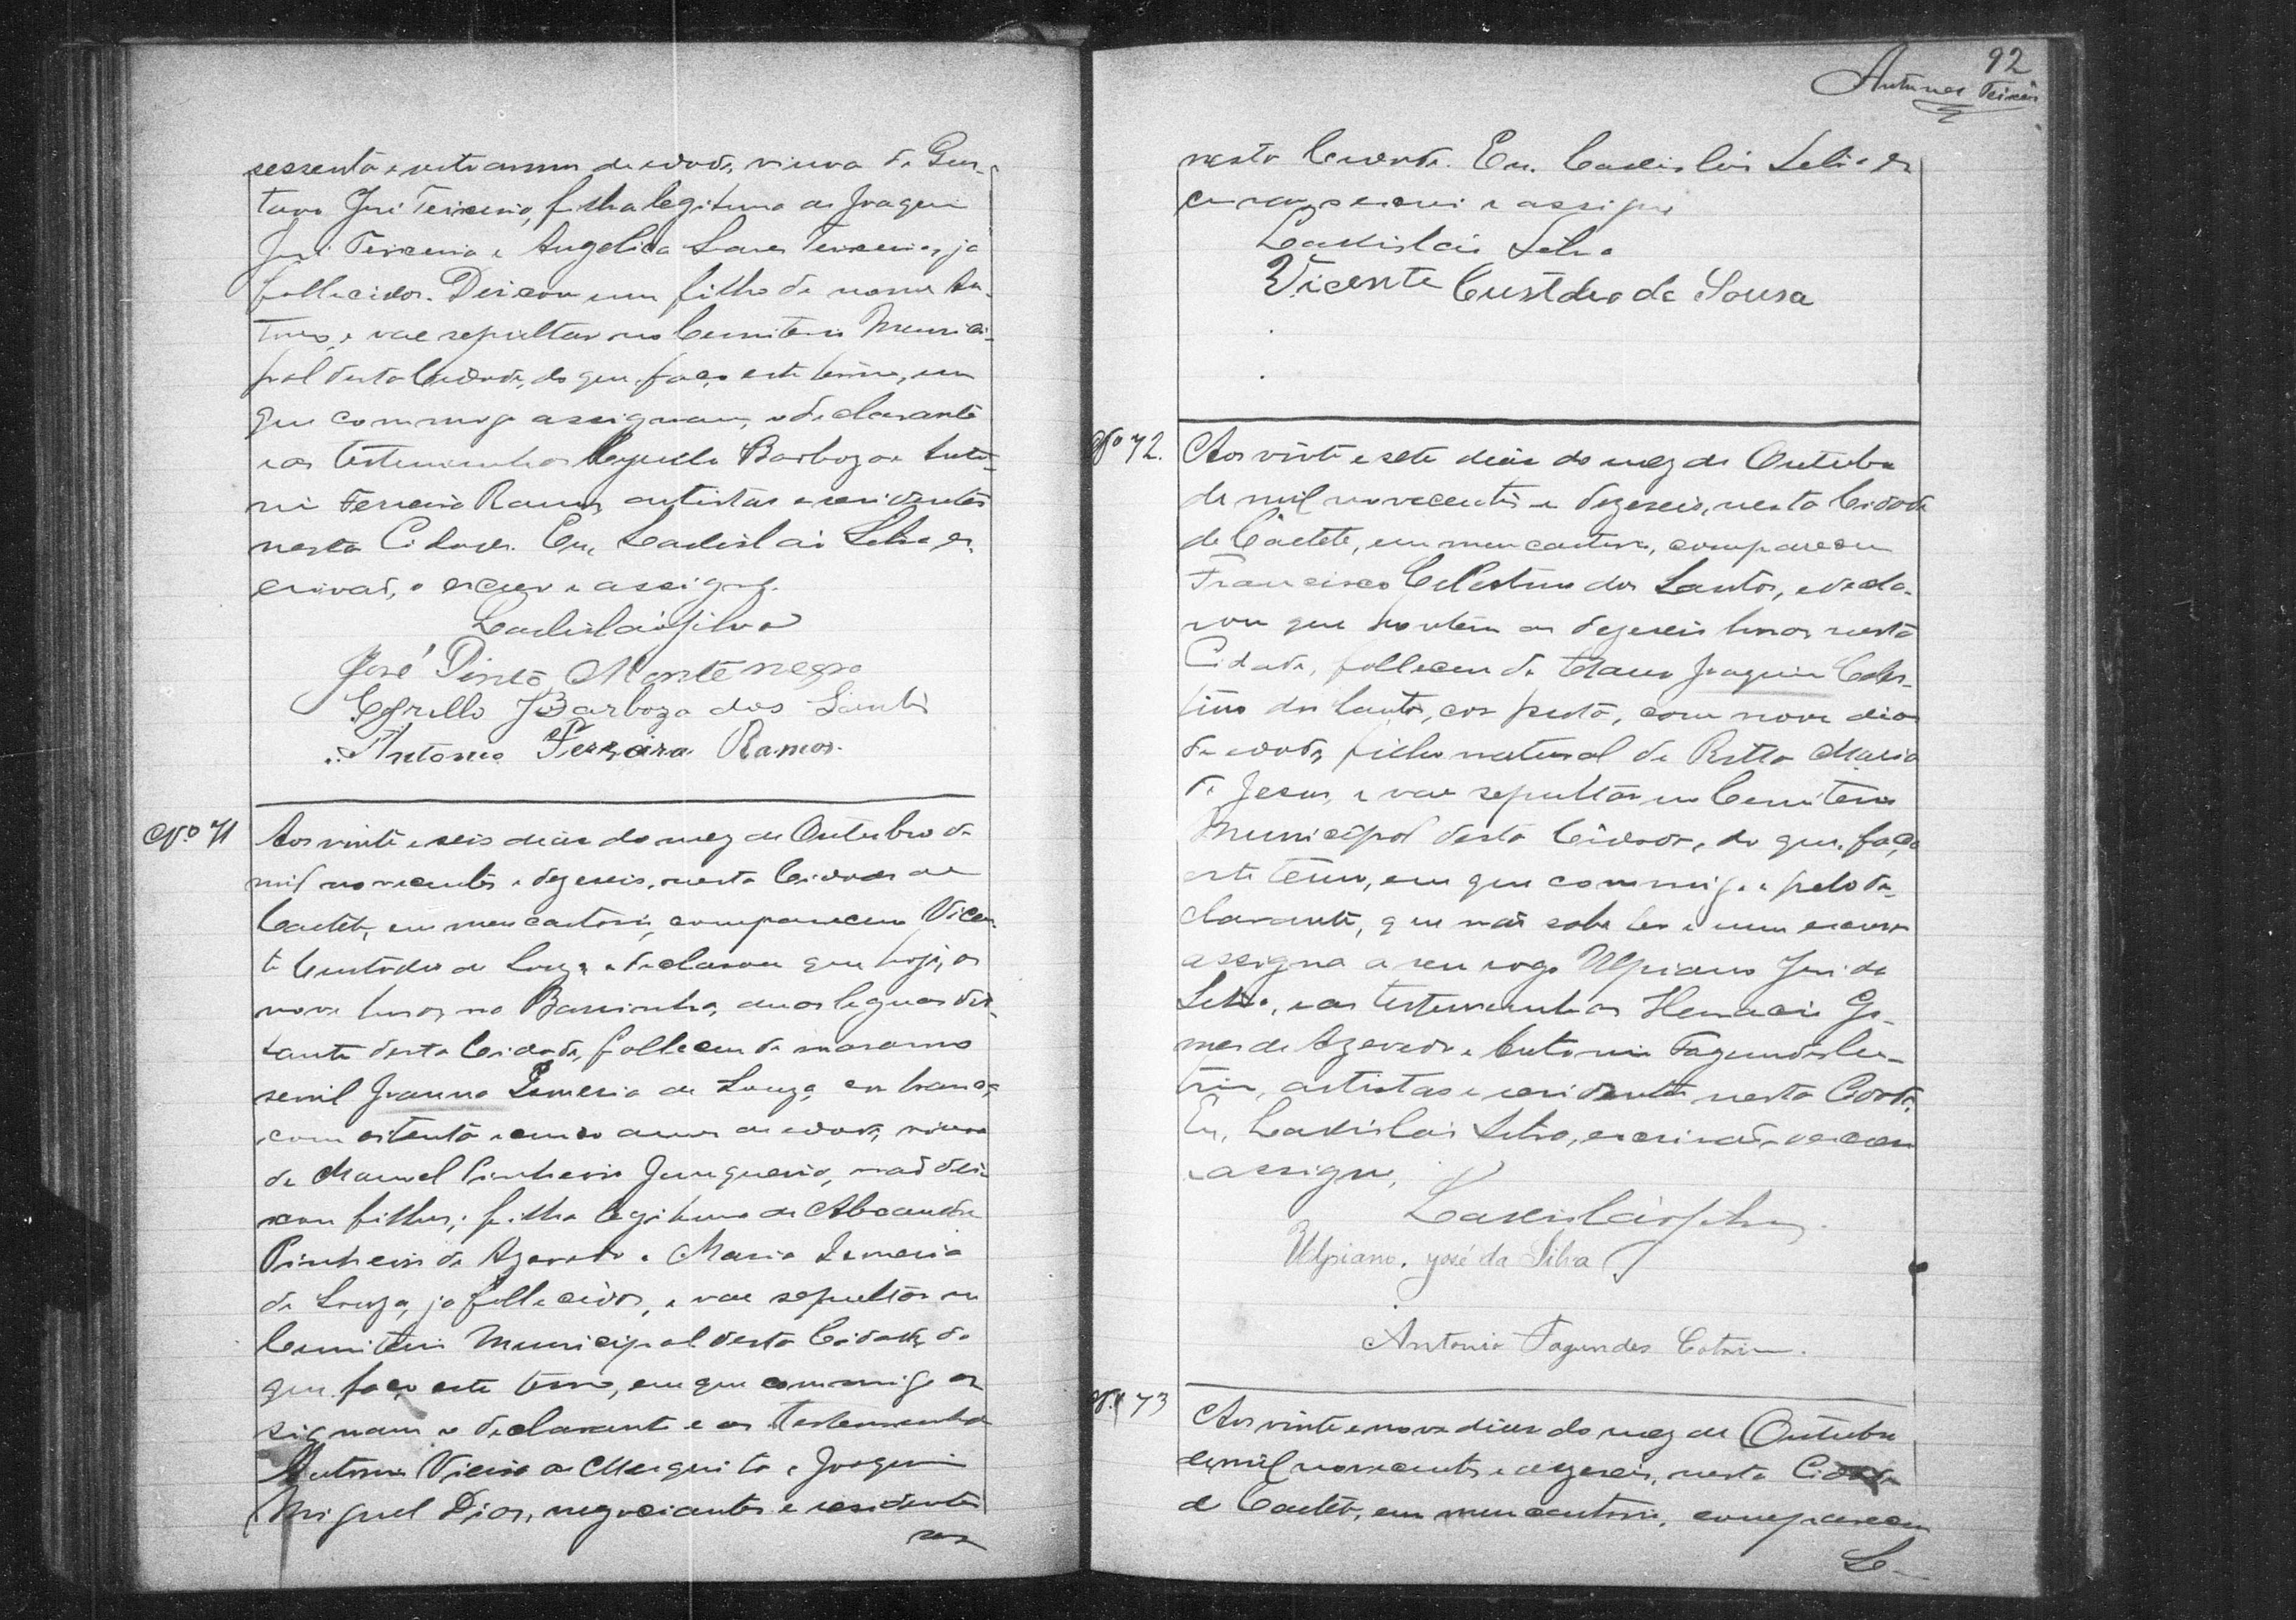 sessenta e oito annos de edade, viuva de Gus-
tavo José Teixeira, filha legitima de Joaquim
José Teixeira e Angelica Teixeira, ja
fallecidos. Deixou um filho de nome An-
e vae sepultar no Cemiterio Munici-
pal desta Cidade, do que faço este termo, em
que commigo assignam, o declarante
e as testemunhas Barboza e Anto-
nio Ferreira Ramos, artistas e residentes
nesta Cidade. Eu, Ladisláo Silva, es-
crivaõ, o escrevi e assigno.
Ladisláo Silva
José Pinto Montenegro
Barboza dos Santos
Antonio Ferreira Ramos.
Nº 71
Aos vinte e seis dias do mez de Outubro de
mil novecentos e dezeseis, nesta Cidade de
Caeteté, em meu cartorio, compareceu Vicen-
te Custodio de Souza e declarou que hoje, as
nove horas, no Barrinha, duas leguas dis-
tante desta Cidade, falleceu de marasmo
senil Joanna Iemeria de Souza, côr branca,
com oitenta e cinco annos de edade, viuva
de Manoel Pinheiro Junqueira, naõ dei-
xou filhos; filha legitima de Alexandre
Pinheiro de Azevedo e Maria Iemeria
de Souza, ja fallecidos, e vae sepultar no
Cemiterio Municipal desta Cidade, do
que faço este termo, em que commigo as
signam o declarante e as testemunhas
Antonio Vieira de Mesquita e Joaquim
Miguel Dias, negociantes e residentes
92
Antunes Teixeira
nesta Cidade. Eu, Ladisláo Silva es
crivaõ, o escrevi e assigno
Ladisláo Silva
Vicente Custodio de Sousa
Nº 72.
Aos vinte e sete dias do mez de Outubro
de mil novecentos e dezeseis, nesta Cidade
de Caeteté, em meu cartorio, compareceu
Francisco Celestino dos Santos, e decla-
rou que hontem as dezeseis horas nesta
Cidade, falleceu de tetano Joaquim Celes-
tino dos Santos, côr preta, com nove dias
de edade, filho natural de Ritta Maria
de Jesus, e vae sepultar no Cemiterio
Municipal desta Cidade, do que faço
este termo, em que commigo e pelo de-
clarante, que naõ sabe ler e nem escrever
assigna a seu rogo Ulpiano José da
Silva, e as testemunhas Horacio Go-
mes de Azevedo e Antonio Fagundes Co-
trim, artistas e residentes nesta Cidade.
Eu, Ladisláo Silva, escrivaõ, o escrevi
e assigno,
Ladisláo Silva
Ulpiano José da Silva
Antonio Fagundes Cotrim.
Nº 73
Aos vinte e nove dias do mez de Outubro
de mil novecentos e dezeseis, nesta Cidade
de Caeteté, em meu cartorio, compareceu